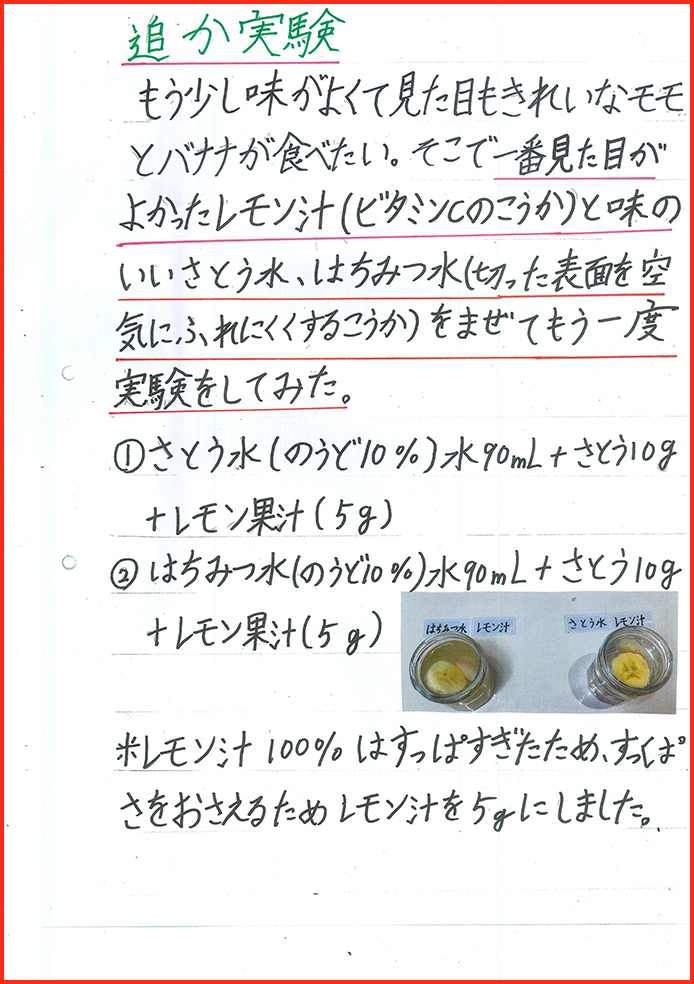 追か実験
もう少し味がよくて見た目もきれいなモモ
とバナナが食べたい。そこで一番見た目が
よかったレモン汁(ビタミンCのこうか)と味の
いいさとう水、はちみつ水(切った表面を空
気にふれにくくするこうか)をまぜてもう一度
実験をしてみた。
①さとう水(のうど10%)水90mL+さとう10g
+レモン果汁(5g)
②はちみつ水(のうど10%)水90mL+さとう10g
+レモン果汁(5g)
はちみつ水 レモン汁
さとう水 レモン汁
※レモン汁100%はすっぱすぎたため、すっぱ
さをおさえるためレモン汁を5gにしました。